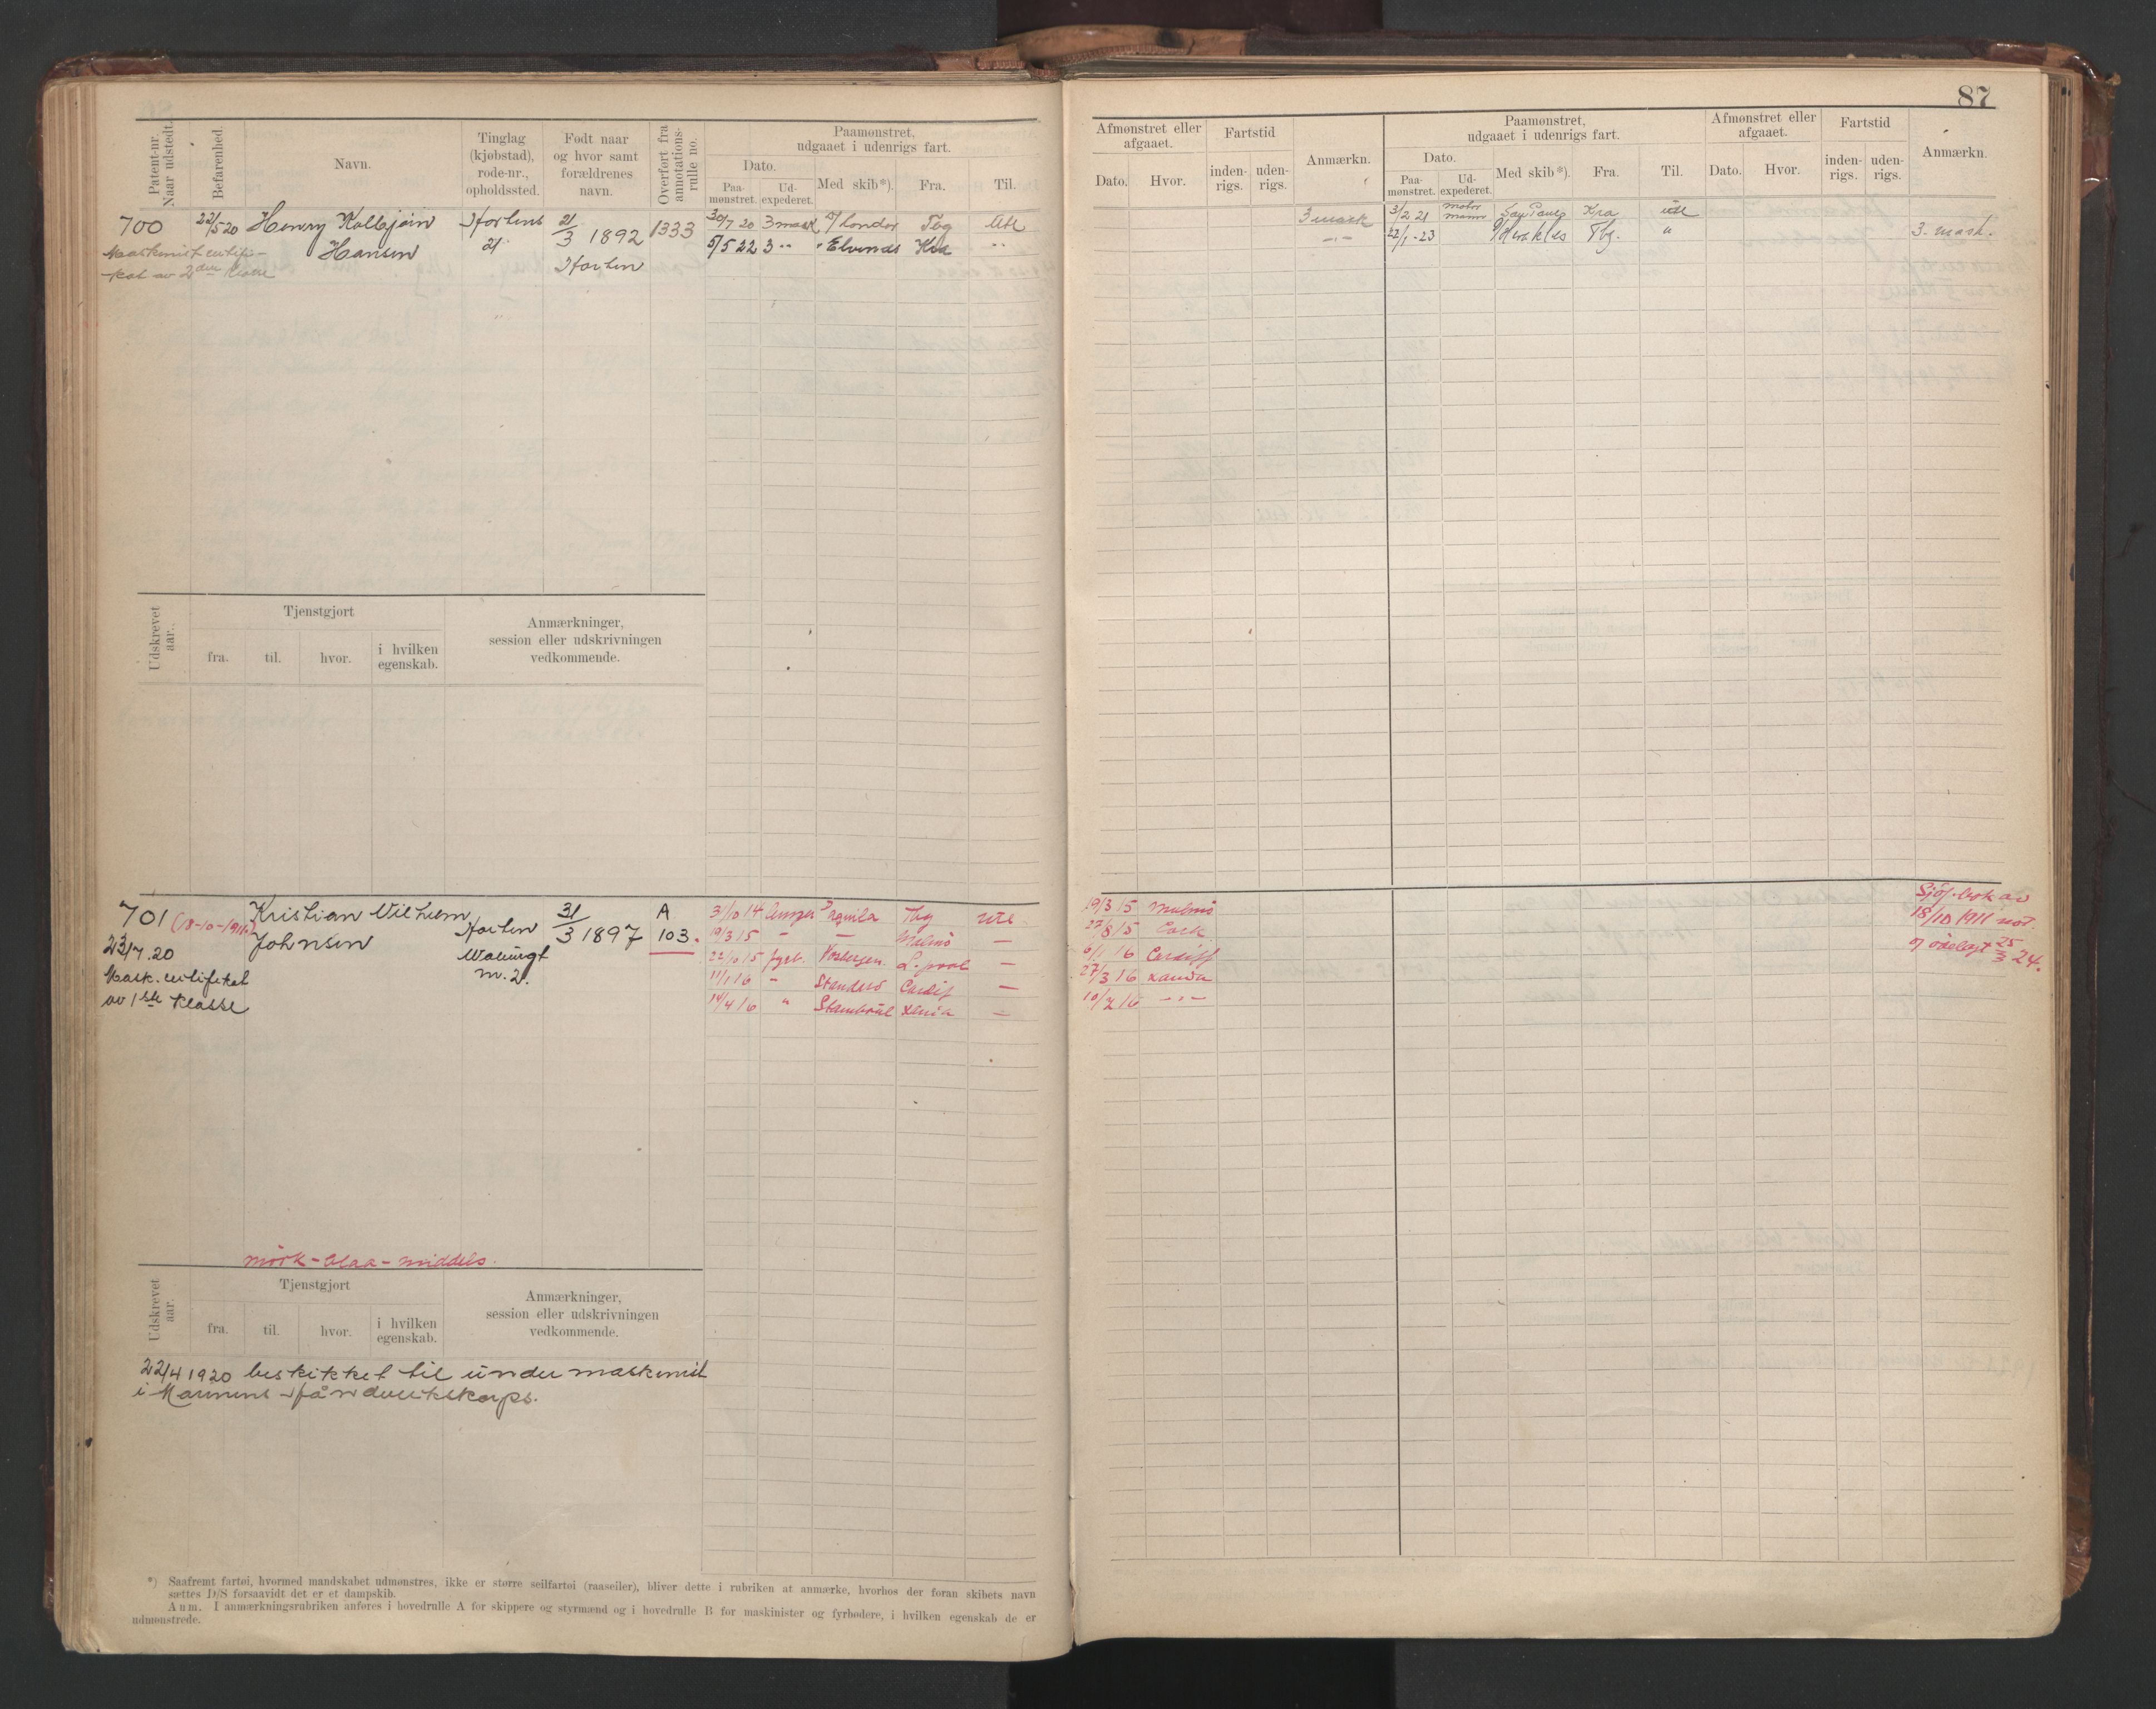 87
Patent-nr. Naar udstedt.
Befarenhed.
Navn.
Tinglag (kjøbstad), rode-nr., opholdssted.
Født naar og hvor samt forældrenes navn.
Overført fra annotations-rulle no.
Paamønstret, udgaaet i udenrigs fart.
Dato.
Paa-mønstret.
Ud-expederet.
Med skib*).
Fra.
Til.
Afmønstret eller afgaaet.
Dato.
Hvor.
Fartstid
inden-rigs.
uden-rigs.
Anmærkn.
Paamønstret, udgaaet i udenrigs fart.
Dato.
Paa-mønstret.
Ud-expederet.
Med skib*).
Fra.
Til.
Afmønstret eller afgaaet.
Dato.
Hvor.
Fartstid
inden-rigs.
uden-rigs.
Anmærkn.
700 22/5 20 Henry Kolbjøin Hortens 21/3 1892 1333 30/7 20 3 mask Tbg Ute
Hansen 21 Horten 5/5 22 3 " Kra "
Maskinist certifi-
kat av 2den klasse
3 mask 3/2 21 motor Kra ute
22/1-23 Herakles Tbg. " 3. mask.
Udskrevet aar.
Tjenstgjort
fra.
til.
hvor.
i hvilken egenskab.
Anmærkninger, session eller udskrivningen vedkommende.
701 (18-10-1911) Kristian Vilhelm Horten 31/3 1897 A 103.
Johnsen
23/7.20
Mask. certifikat
av 1ste Klasse
m. 2.
31/10 14 Aquila Tbg ute
19/3 15 - - Malmö -
22/10 15 fyrb. L. pool -
11/1 16 - Cardif -
14/4 16 " -
19/3 15 Malmö
22/8 15 Cork
6/1 16 Cardiff
27/3 16
10/2 16 -"-
Sjöf.bok av
18/10 1911 mot.
og ödelagt 25/3 24.
mörk - blaa - middels.
Udskrevet aar.
Tjenstgjort
fra.
til.
hvor.
i hvilken egenskab.
Anmærkninger, session eller udskrivningen vedkommende.
22/4 1920 beskikket til undermaskinist
i Marinens Håndverkskorps.
*) Saafremt fartøi, hvormed mandskabet udmønstres, ikke er større seilfartøi (raaseiler), bliver dette i rubriken at anmærke, hvorhos der foran skibets navn
sættes D/S forsaavidt det er et dampskib.
Anm. I anmærkningsrubriken anføres i hovedrulle A for skippere og styrmænd og i hovedrulle B for maskinister og fyrbødere, i hvilken egenskab de er
udmønstrede.